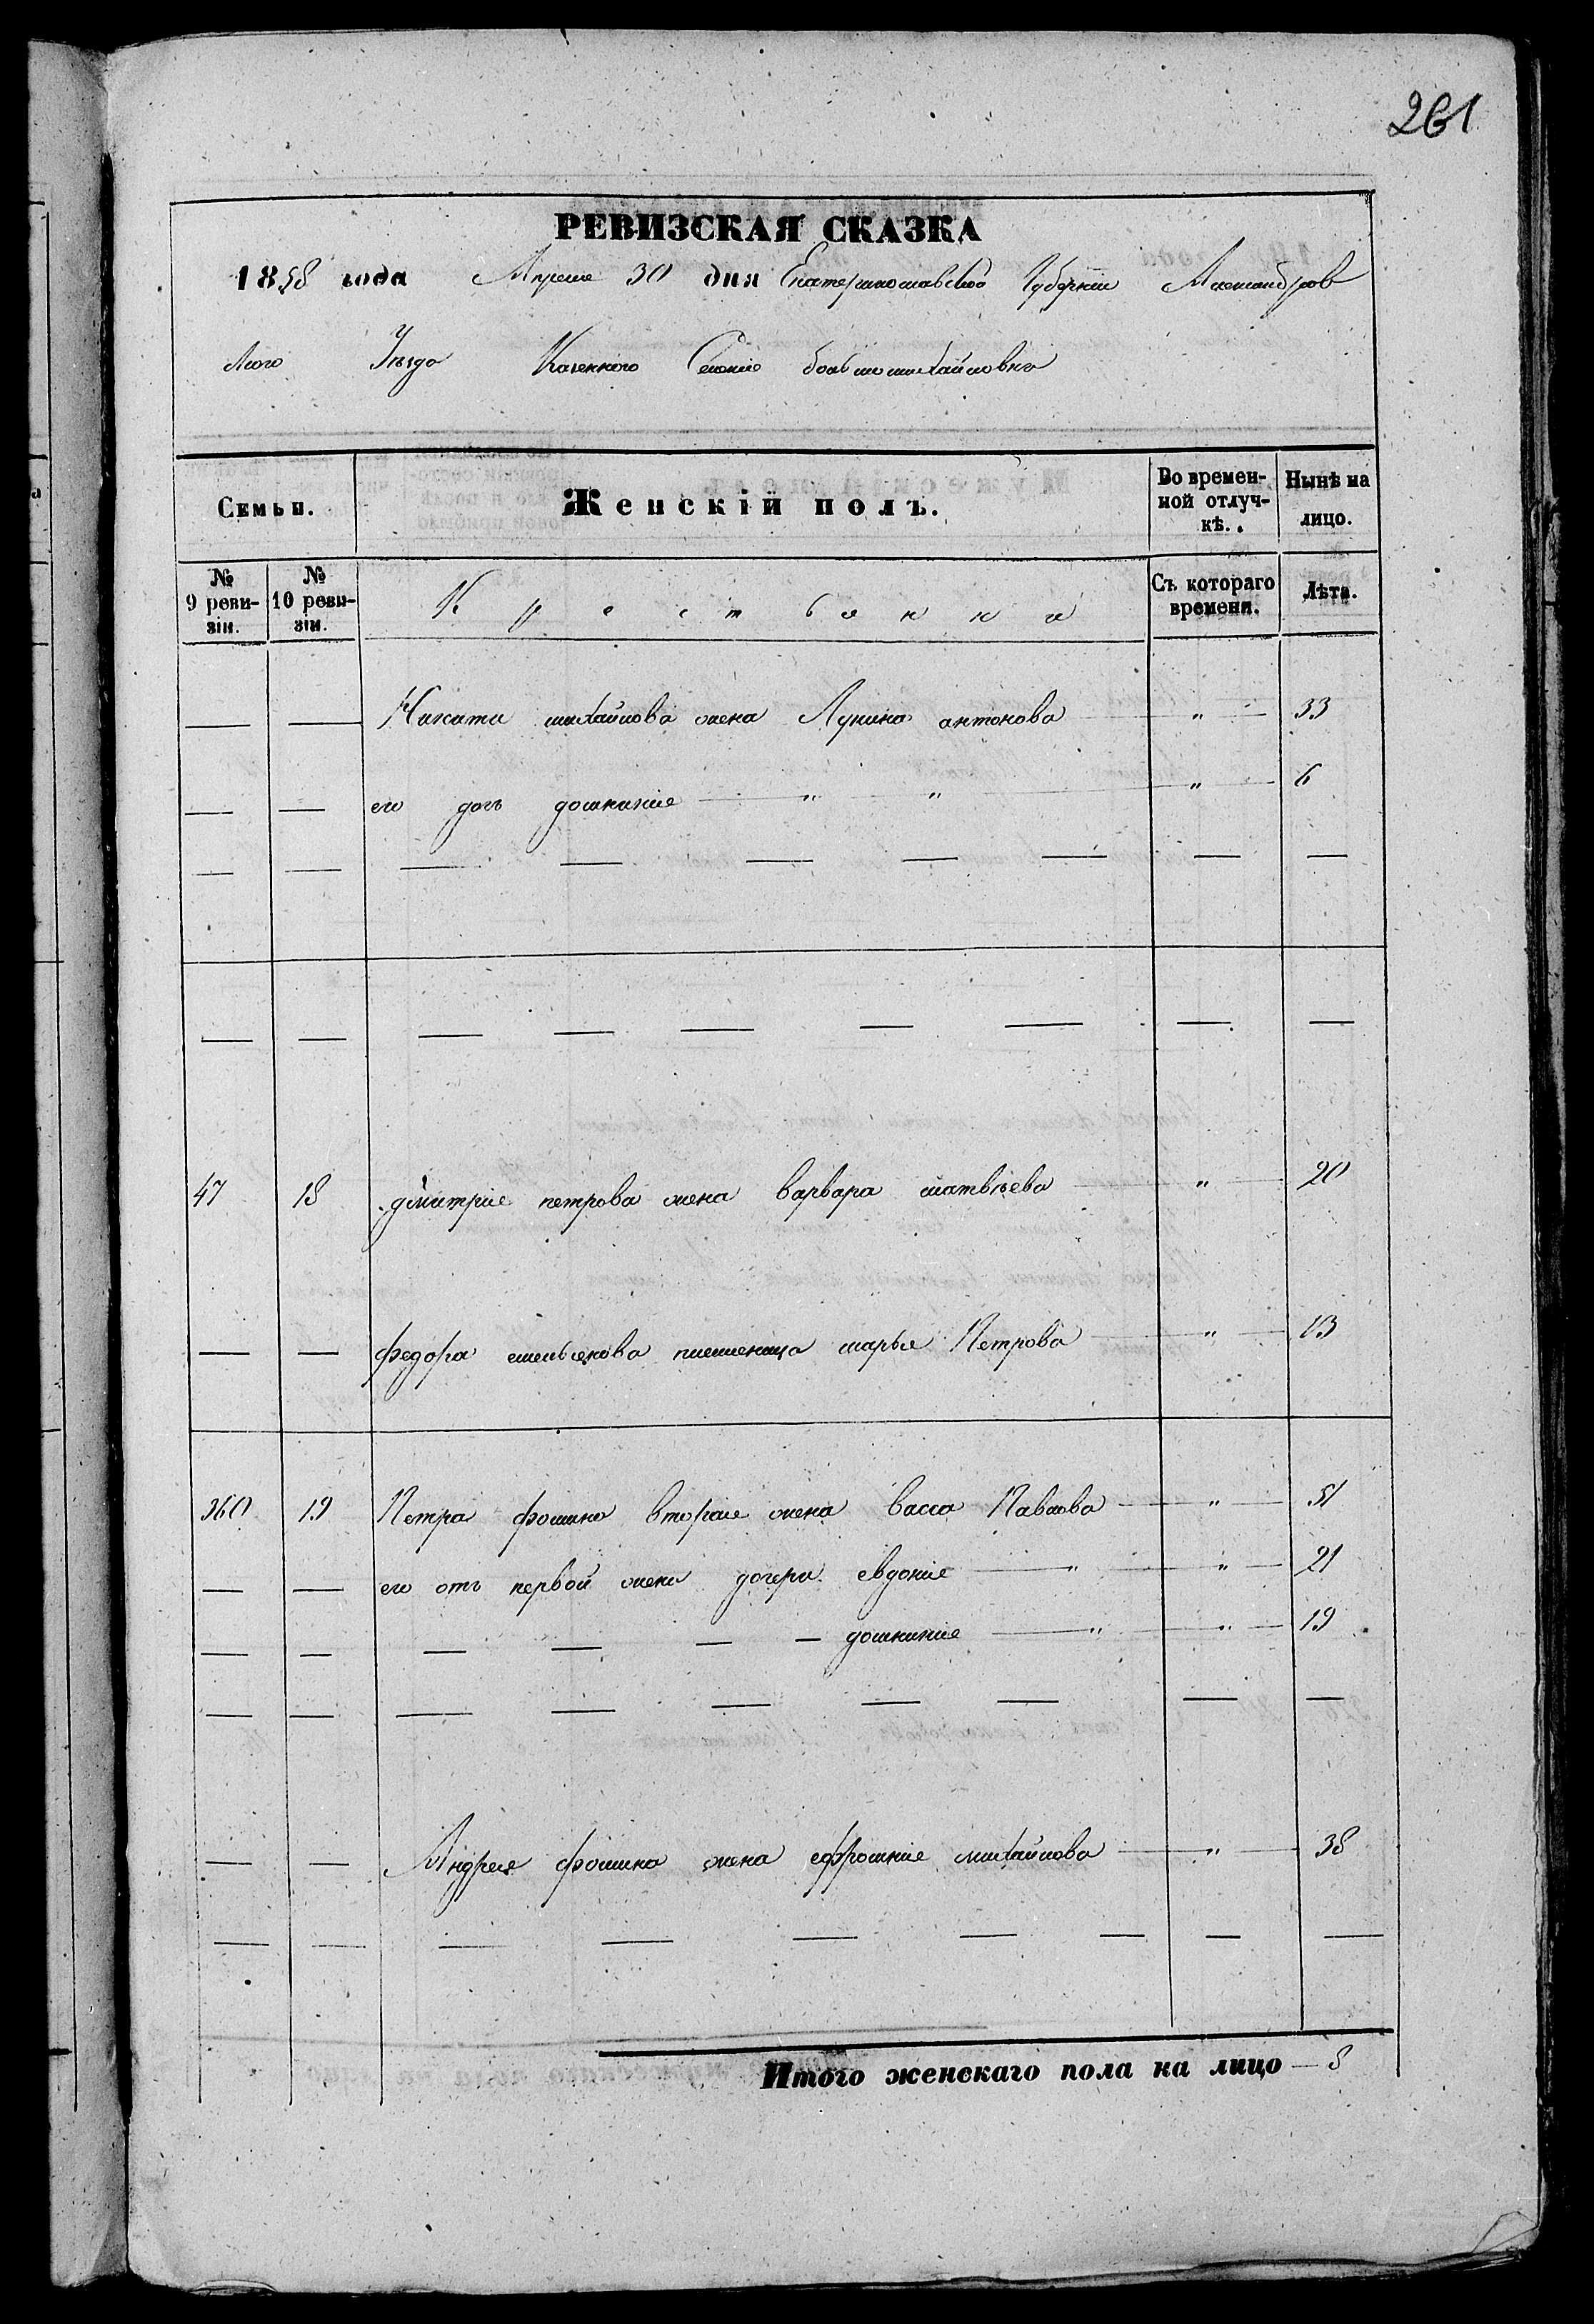 261
РЕВИЗСКАЯ СКАЗКА
1858 года Апреля 30 дня Екатеринославской Губернии Александров
ского Уезда Казенного Селения больше михайловки
Семьи. Женскій полъ. Во времен-ной отлуч-кѣ. Нынѣ на лицо.
№ 9 реви-зіи. № 10 реви-зіи. Крестьянки Съ котораго времени. Лѣта.
— — Никиты михайлова жена Лукия антонова — " — 33
— — его дочь домникия — " " — " — 6
47 18 дмитрия петрова жена варвара матвѣева — " — 20
— — федора емельянова племеница марья Петрова — " — 13
360 19 Петра фомина вторая жена васса Павлова — " — 51
— — его отъ первой жены дочери евдокия — " — " — 21
— — — — — — домникия — " — " — 19
— — Андрея фомина жена ефросиния михайлова — " — 38
Итого женскаго пола на лицо — 8